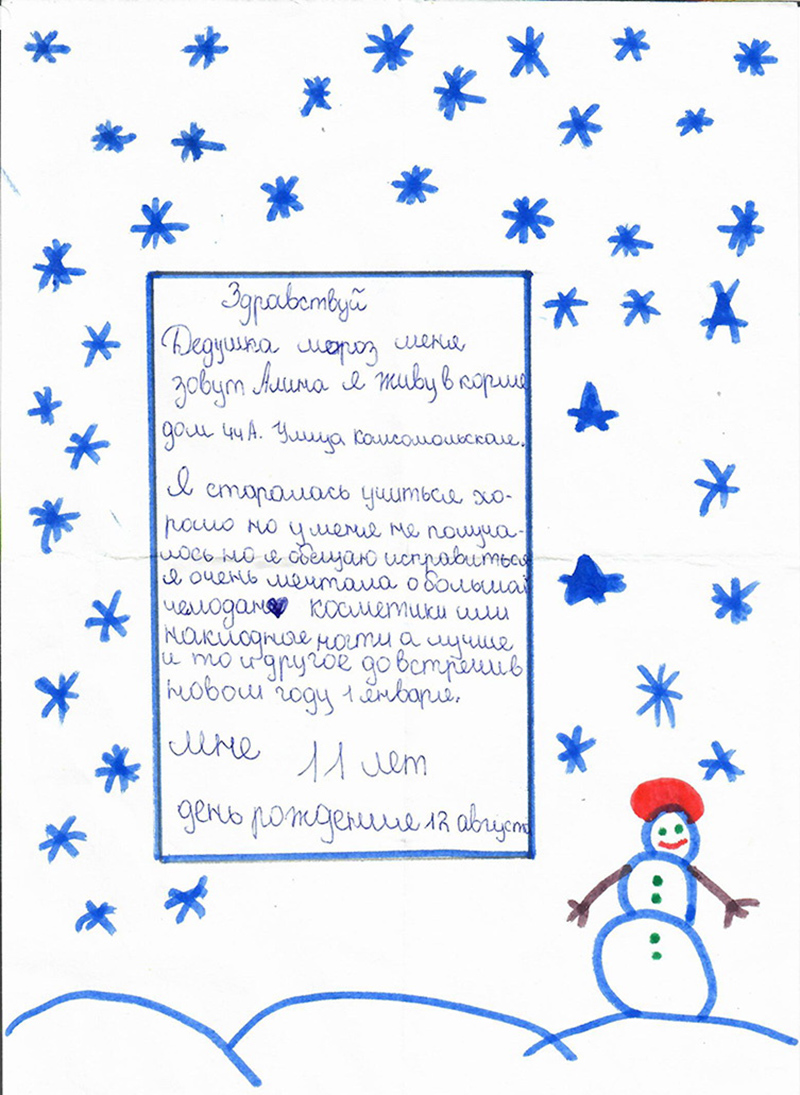 Здравствуй
Дедушка мороз меня
зовут Алина я живу в корме
дом 44А. Улица комсомольская.
Я старалась учиться хо-
рошо но у меня не получа-
лось но я обещаю исправиться
я очень мечтала о большой
чемодан косметики или
накладные ногти а лучше
и то и другое до встречи в
новом году 1 января.
мне 11 лет
день рождение 12 август